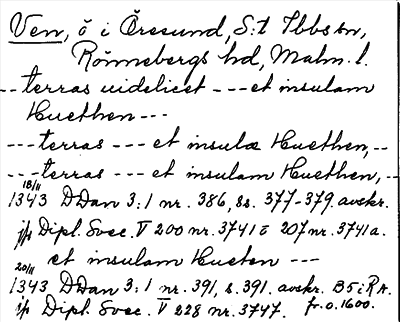 Ven, ö i Öresund, S:t Ibbs sn,
Rönnebergs hd, Malm. l.
--terras uidelicet --- et insulam
Huethen ---
--- terras --- et insulæ Huethen,--
---terras --- et insulam Huethen, --
18/11
1343 DDan 3:1 nr. 386, ss. 377-379. avskr.
jfr Dipl. Svec. V 200 nr. 3741 o 207 nr. 3741a.
et insulam Hueten ---
20/11
1343 DDan 3:1 nr. 391, s. 391. avskr. B5 i RA.
jfr Dipl. Svec. V 228 nr. 3747. fr. o. 1600.